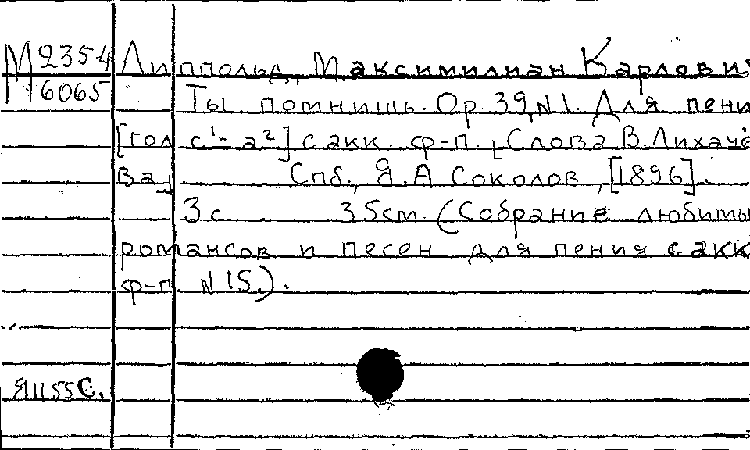 М 2354 Липпольд, Максимилиан Карлович
16065 Ты помнишь. Ор. 39, N 1. Для пени
[гол с¹-а²] с акк. ф-п. [Слова В. Лихаче
ва] Спб., Я. А Соколов, [1896].
3 с 35 см. (Собрание любимы
романсов и песен для пения с акк
ф-п N 15.).
Я1155С.